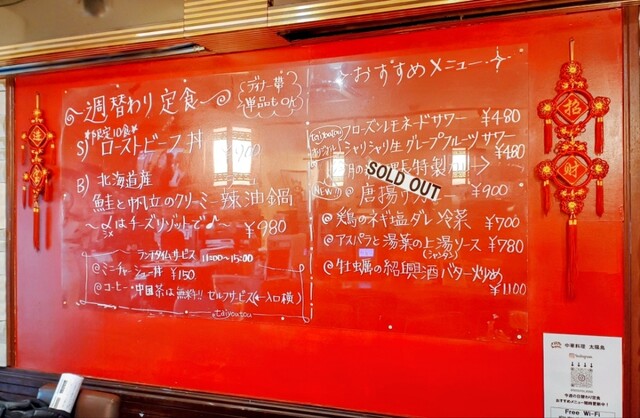 〜週替わり定食〜
ディナー時
単品もOK
*限定10食*
S) ローストビーフ丼
B) 北海道産
鮭と帆立のクリーミー辣油鍋
〜〆はチーズリゾットで♪〜 ¥980
ランチタイムサービス 11:00〜15:00
@ミーチャーシュー丼 ¥150
@コーヒー・中国茶は無料!! セルフサービス(←入口横)
taiyoutou
〜おすすめメニュー〜
フローズンレモネードサワー ¥480
シャリシャリ生グレープフルーツサワー ¥480
特製
SOLD OUT
NEW!!
唐揚 ¥900
@鶏のネギ塩ダレ冷菜 ¥700
@アスパラと湯葉の上湯ソース ¥780
(シャンタン)
@牡蠣の紹興酒バター炒め
¥1100
招
財
中華料理 太陽島
Instagram
今週の日替わり定食
おすすめメニュー随時更新中!
Free Wi-Fi